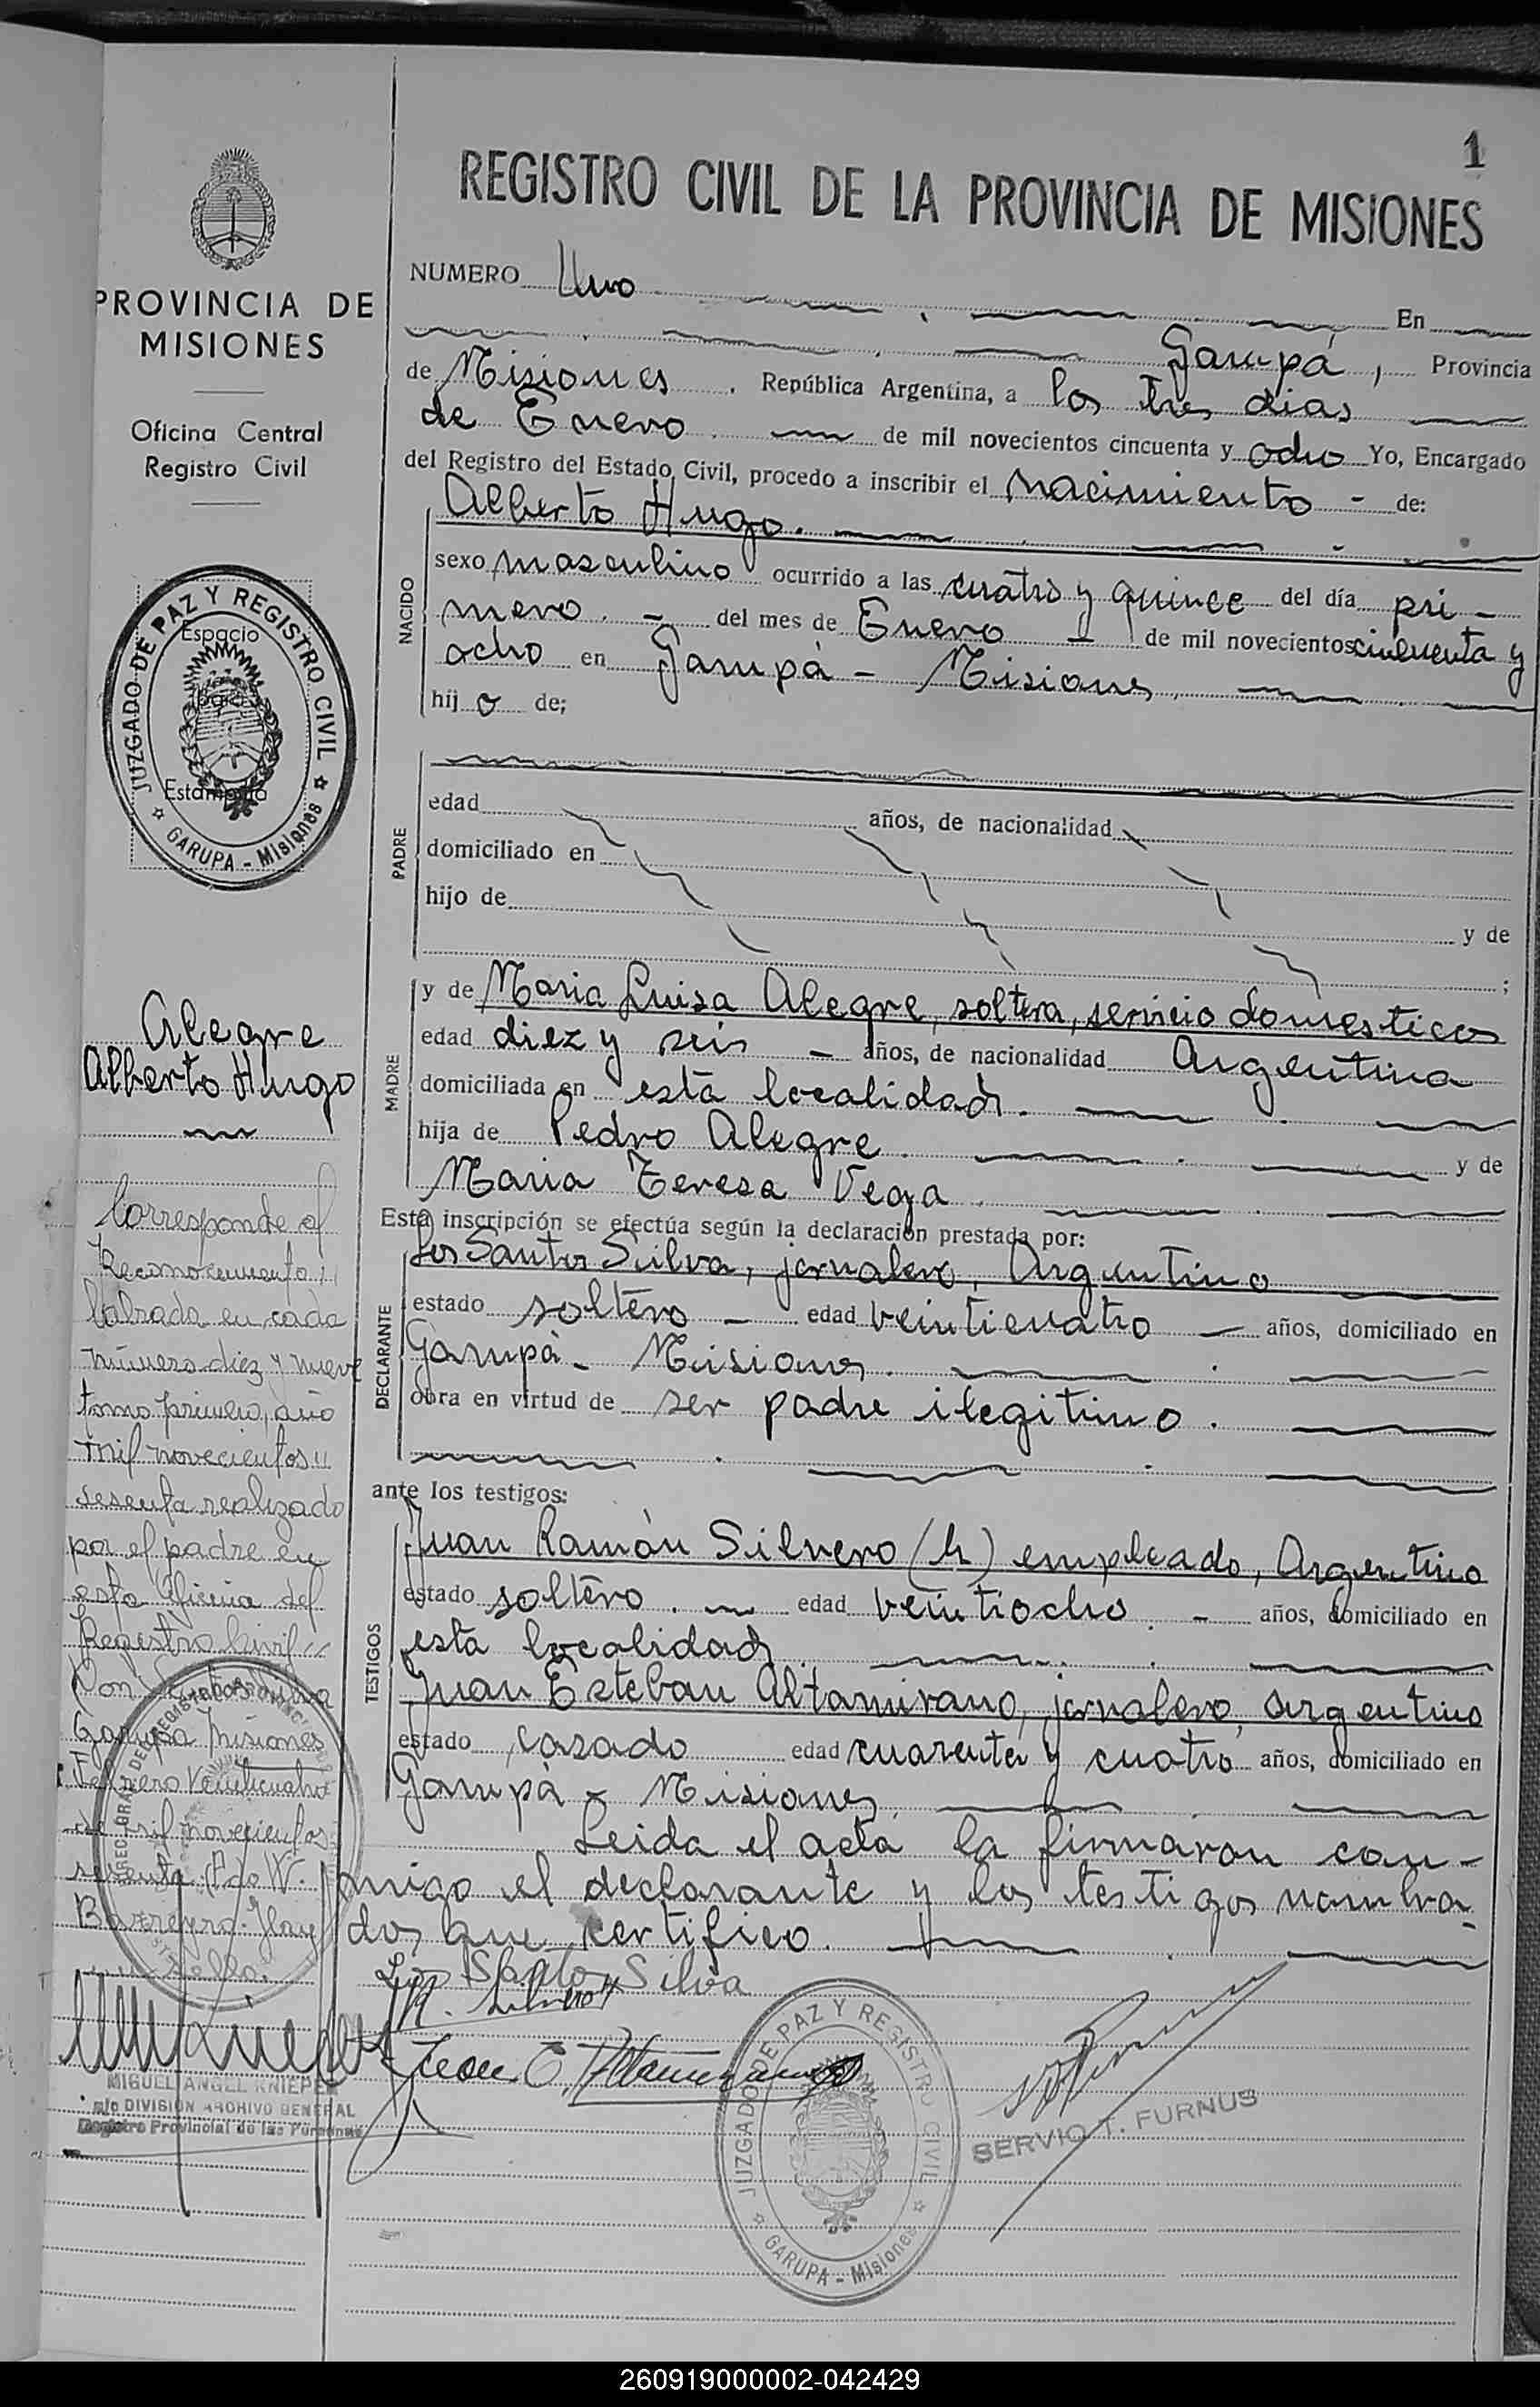 1
REGISTRO CIVIL DE LA PROVINCIA DE MISIONES
PROVINCIA DE
MISIONES
Oficina Central
Registro Civil
JUZGADO DE PAZ Y REGISTRO CIVIL
GARUPA - Misiones
Espacio
para
Estampilla
Alegre
Alberto Hugo
Corresponde al
Reconocimiento
labrada en cada
número diez y nueve
tomo primero, año
mil novecientos
sesenta realizado
por el padre en
esta Oficina del
Registro Civil
Don
Garupa Misiones
Febrero Veinticuatro
de mil novecientos
sesenta Fdo W.
Barreyro. Hay
un Sello.
MIGUEL ANGEL KNIEPER
a/c DIVISION ARCHIVO GENERAL
Registro Provincial de las Personas
NUMERO Uno En
Garupá, Provincia
de Misiones . República Argentina, a los tres dias
de Enero de mil novecientos cincuenta y ocho Yo, Encargado
del Registro del Estado Civil, procedo a inscribir el nacimiento - de:
NACIDO
Alberto Hugo.
sexo masculino ocurrido a las cuatro y quince del día pri -
mero. - del mes de Enero - de mil novecientos cincuenta y
ocho en Garupá - Misiones
hij o de;
PADRE
edad años, de nacionalidad
domiciliado en
hijo de y de
;
MADRE
y de Maria Luisa Alegre, soltera, servicio domesticos
edad diez y seis - años, de nacionalidad Argentina
domiciliada en esta localidad.
hija de Pedro Alegre. y de
Maria Teresa Vega
Esta inscripción se efectúa según la declaración prestada por:
DECLARANTE
Los Santos Silva, jornalero, Argentino
estado soltero - edad veinticuatro - años, domiciliado en
Garupá - Misiones
obra en virtud de ser padre ilegitimo.
ante los testigos:
TESTIGOS
Juan Ramón Silvero (h) empleado, Argentino
estado soltero. edad veintiocho. - años, domiciliado en
esta localidad
Juan Esteban Altamirano, jornalero, argentino
estado casado edad cuarenta y cuatro años, domiciliado en
Garupá - Misiones
Leida el acta la firmaron con-
migo el declarante y los testigos nombra-
dos que certifico.
Los Santos Silva
Juan E. Altamirano
JUZGADO DE PAZ Y REGISTRO CIVIL
GARUPA - Misiones
SERVIO T. FURNUS
260919000002-042429